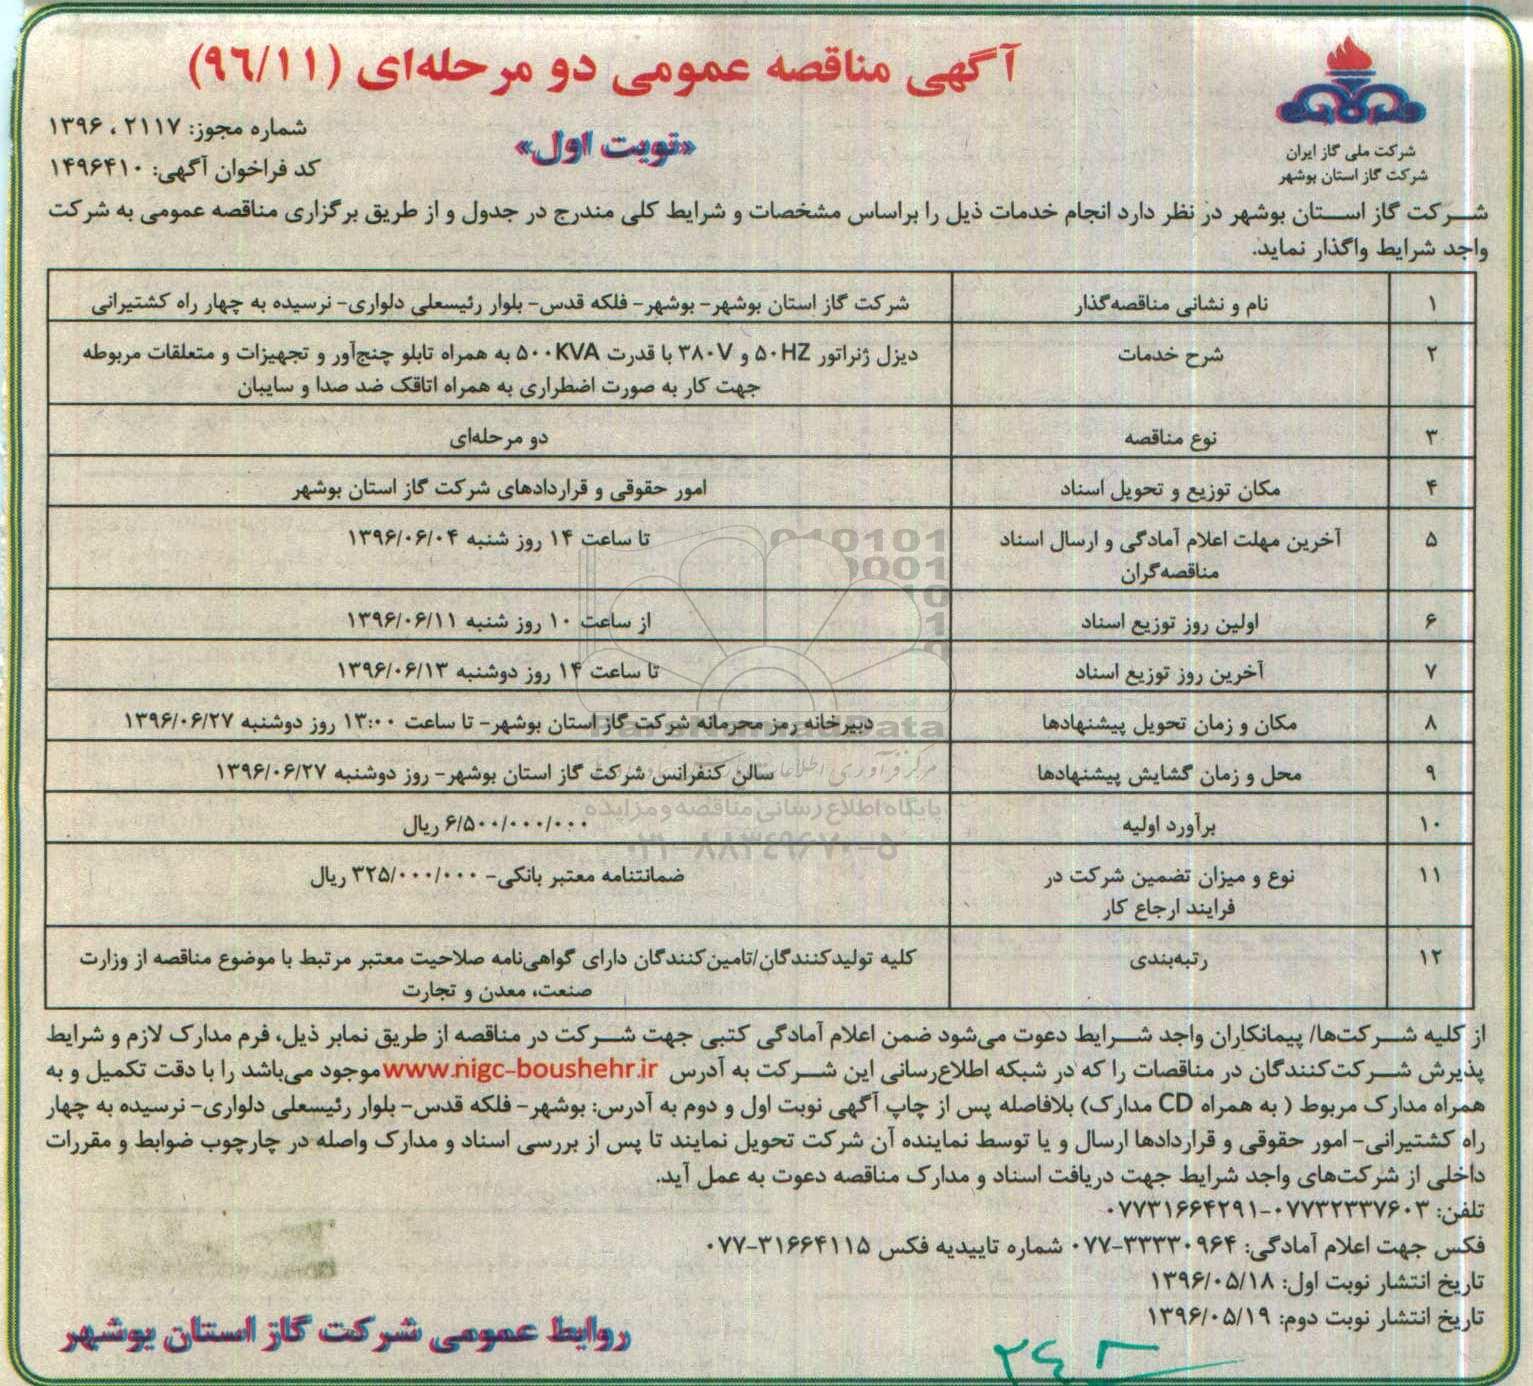 آگهی مناقصه عمومی دو مرحله‌ای (۹۶/۱۱)
«نوبت اول»
شماره مجوز: ۲۱۱۷ ، ۱۳۹۶
کد فراخوان آگهی: ۱۴۹۶۴۱۰
شرکت ملی گاز ایران
شرکت گاز استان بوشهر
شرکت گاز استان بوشهر در نظر دارد انجام خدمات ذیل را براساس مشخصات و شرایط کلی مندرج در جدول و از طریق برگزاری مناقصه عمومی به شرکت
واجد شرایط واگذار نماید.
۱ نام و نشانی مناقصه‌گذار شرکت گاز استان بوشهر- بوشهر- فلکه قدس- بلوار رئیسعلی دلواری- نرسیده به چهار راه کشتیرانی
۲ شرح خدمات دیزل ژنراتور ۵۰HZ و ۳۸۰V با قدرت ۵۰۰KVA به همراه تابلو چنج‌آور و تجهیزات و متعلقات مربوطه
جهت کار به صورت اضطراری به همراه اتاقک ضد صدا و سایبان
۳ نوع مناقصه دو مرحله‌ای
۴ مکان توزیع و تحویل اسناد امور حقوقی و قراردادهای شرکت گاز استان بوشهر
۵ آخرین مهلت اعلام آمادگی و ارسال اسناد تا ساعت ۱۴ روز شنبه ۱۳۹۶/۰۶/۰۴
مناقصه‌گران
۶ اولین روز توزیع اسناد از ساعت ۱۰ روز شنبه ۱۳۹۶/۰۶/۱۱
۷ آخرین روز توزیع اسناد تا ساعت ۱۴ روز دوشنبه ۱۳۹۶/۰۶/۱۳
۸ مکان و زمان تحویل پیشنهادها دبیرخانه رمز محرمانه شرکت گاز استان بوشهر- تا ساعت ۱۳:۰۰ روز دوشنبه ۱۳۹۶/۰۶/۲۷
۹ محل و زمان گشایش پیشنهادها سالن کنفرانس شرکت گاز استان بوشهر- روز دوشنبه ۱۳۹۶/۰۶/۲۷
۱۰ برآورد اولیه ۶/۵۰۰/۰۰۰/۰۰۰ ریال
۱۱ نوع و میزان تضمین شرکت در ضمانتنامه معتبر بانکی- ۳۲۵/۰۰۰/۰۰۰ ریال
فرایند ارجاع کار
۱۲ رتبه‌بندی کلیه تولیدکنندگان/تامین‌کنندگان دارای گواهی‌نامه صلاحیت معتبر مرتبط با موضوع مناقصه از وزارت
صنعت، معدن و تجارت
پایگاه اطلاع رسانی مناقصه و مزایده
۰۲۱-۸۸۳۴۹۶۷۰-۵
از کلیه شرکت‌ها/ پیمانکاران واجد شرایط دعوت می‌شود ضمن اعلام آمادگی کتبی جهت شرکت در مناقصه از طریق نمابر ذیل، فرم مدارک لازم و شرایط
پذیرش شرکت‌کنندگان در مناقصات را که در شبکه اطلاع‌رسانی این شرکت به آدرس www.nigc-boushehr.ir موجود می‌باشد را با دقت تکمیل و به
همراه مدارک مربوط ( به همراه CD مدارک) بلافاصله پس از چاپ آگهی نوبت اول و دوم به آدرس: بوشهر- فلکه قدس- بلوار رئیسعلی دلواری- نرسیده به چهار
راه کشتیرانی- امور حقوقی و قراردادها ارسال و یا توسط نماینده آن شرکت تحویل نمایند تا پس از بررسی اسناد و مدارک واصله در چارچوب ضوابط و مقررات
داخلی از شرکت‌های واجد شرایط جهت دریافت اسناد و مدارک مناقصه دعوت به عمل آید.
تلفن: ۰۷۷۳۲۳۳۷۶۰۳-۰۷۷۳۱۶۶۴۲۹۱
فکس جهت اعلام آمادگی: ۳۳۳۳۰۹۶۴-۰۷۷ شماره تاییدیه فکس ۳۱۶۶۴۱۱۵-۰۷۷
تاریخ انتشار نوبت اول: ۱۳۹۶/۰۵/۱۸
تاریخ انتشار نوبت دوم: ۱۳۹۶/۰۵/۱۹
روابط عمومی شرکت گاز استان بوشهر